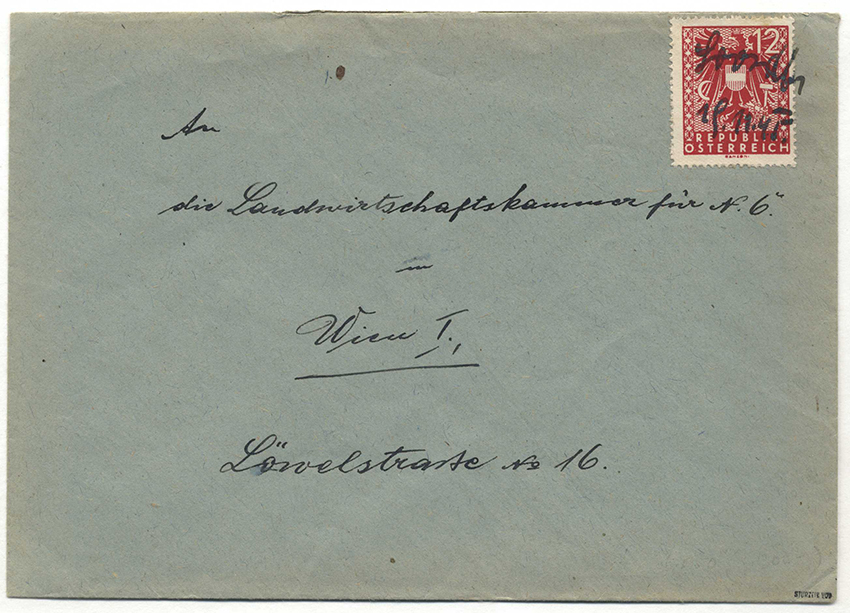 12
19.11.45
REPUBLIK
ÖSTERREICH
An
die Landwirtschaftskammer für N. Ö.
in
Wien I.,
Löwelstraße No 16.